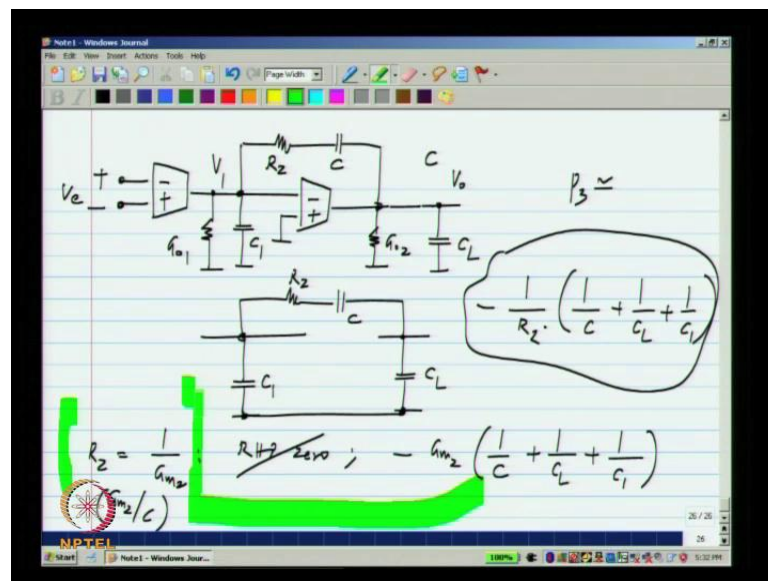 Note1 - Windows Journal
File Edit View Insert Actions Tools Help
Page Width
B I
R2 C
C
V1
Vo
Ve + -
- +
- +
p3 ≃
Go1 C1
Go2 CL
- 1/R2. (1/C + 1/CL + 1/C1)
R2
C
C1 CL
R2 = 1/Gm2 ; RHP Zero ; - Gm2 (1/C + 1/CL + 1/C1)
(Gm2/C)
NPTEL
26 / 26
26
Start
Note1 - Windows Jour...
100%
5:32 PM